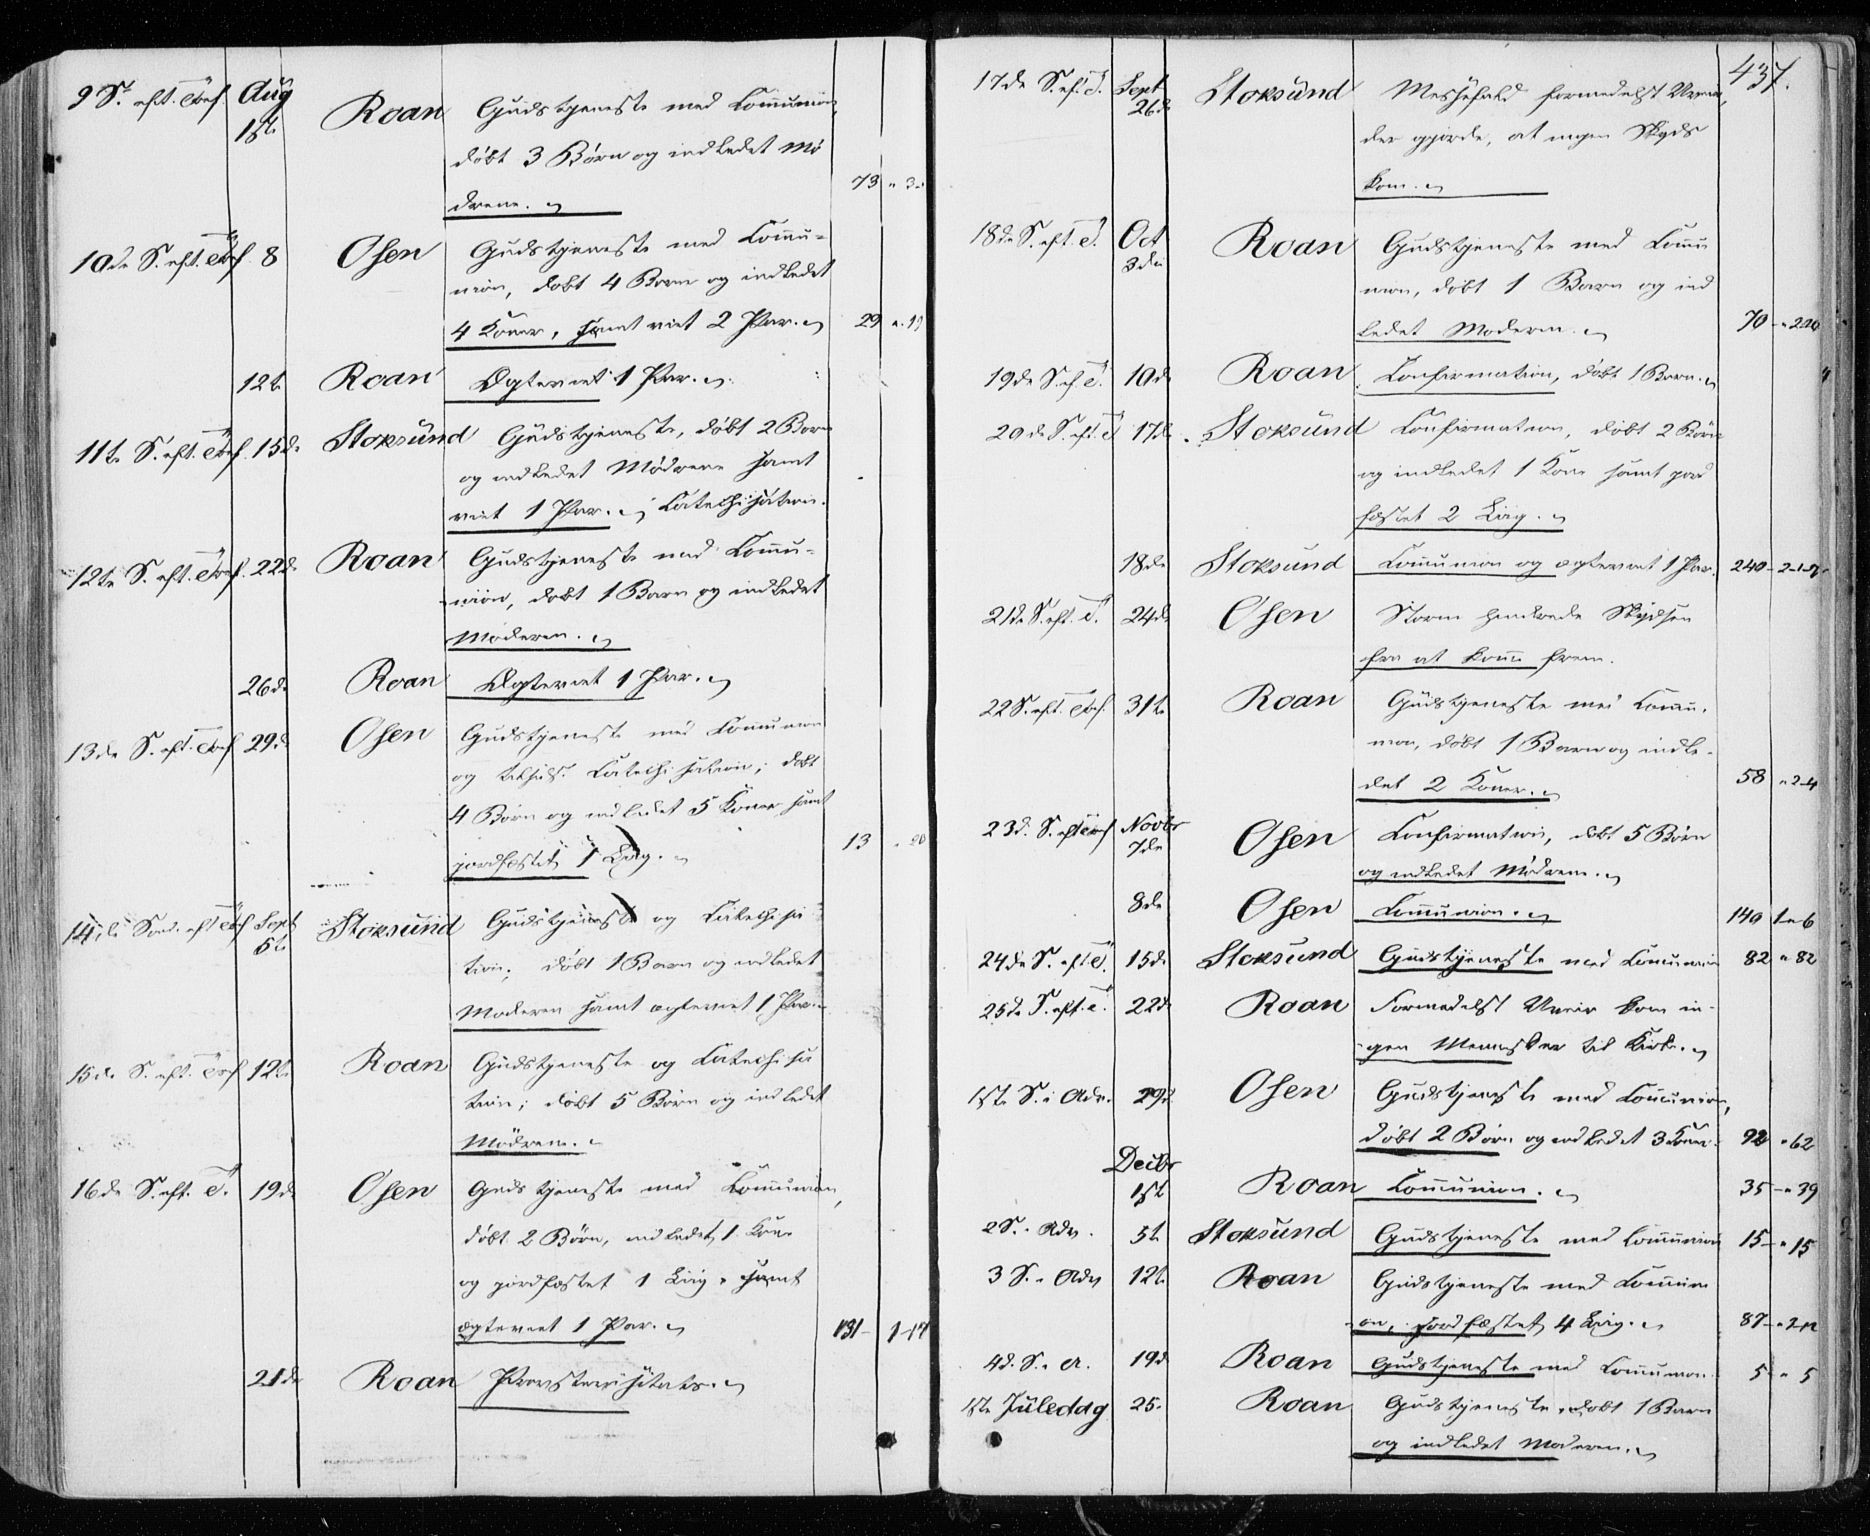 9 S. eft. Tref. Aug 1ste Roan Gudstjeneste med Communion,
döbt 3 Börn og indledet Mö
drene. 73 " 3
10de S. eft. Tref 8 Osen Gudstjeneste med Commu-
nion, döbt 4 Børn og indledet
4 Koner, samt viet 2 Par. 29 " 19
12te Roan Ægteviet 1 Par.
11te S. eft. Tref. 15de Stoksund Gudstjeneste, döbt 2 Børn
og indledet Mödrene samt
viet 1 Par. Catechisation.
12te S. eft. Tref. 22de Roan Gudstjeneste med Commu-
nion, döbt 1 Barn og indledet
Moderen.
26de Roan Ægteviet 1 Par.
13de S. eft. Tref 29de Osen Gudstjeneste med Communion
og Catechisation; döbt
4 Börn og indledet 5 Koner samt
jordfæstet 1 Liig. 13 " 20
14de Sønd. eft Tref Sept 5te Stoksund Gudstjeneste og Catechisa
tion; döbt 1 Barn og indledet
Moderen samt ægteviet 1 Par.
15de S. eft. Tref 12te Roan Gudstjeneste og Catechisa
tion; döbt 5 Börn og indledet
Mödrene.
16de S. eft. T. 19de Osen Gudstjeneste med Communion,
döbt 2 Börn, indledet 1 Kone
og jordfæstet 1 Liig samt
ægteviet 1 Par. 131 - 1-17
21de Roan Provstevisitats.
437.
17de S. ef. T. Sept 26de Stoksund Messefald formedelst Uveir,
der gjorde, at ingen Skyds
kom.
18de S. eft. T. Oct 3die Roan Gudstjeneste med Commu
nion, döbt 1 Barn og ind
ledet Moderen. 70
19de S. ef T. 10de Roan Confirmation, döbt 1 Barn.
20de S. eft. T 17de Stoksund Confirmation, döbt 2 Börn
og indledet 1 Kone samt jord
fæstet 2 Liig.
18de Stoksund Communion og ægteviet 1 Par. 240
21de S. eft. T. 24de Osen Storm hindrede Skydsen
fra at komme frem.
22 S. eft. Tref. 31te Roan Gudstjeneste med Commu-
nion, döbt 1 Barn og indle-
det 2 Koner. 58 " 2-4
23d. S. eft Tref Novbr 7de Osen Confirmation, döbt 5 Börn
og indledet Mödrene.
8de Osen Communion. 140 1 " 6
24de S. eft T. 15de Stoksund Gudstjeneste med Communion 82 " 82
25de S. eft. T. 22de Roan Formedelst Uveir kom in-
gen Mennesker til Kirke.
1ste S. i Adv. 29d. Osen Gudstjeneste med Communion,
döbt 2 Börn og indledet 3 Koner. 92 " 62
Decbr 1ste Roan Communion. 35 - " 39
2 S. " Adv. 5te Stoksund Gudstjeneste med Communion 15 - " 15
3 S. " Adv 12te Roan Gudstjeneste med Communi
on, jordfæstet 4 Liig. 87
4d. S. " A. 19d. Roan Gudstjeneste med Communion. 5 " 5
1ste Juledag 25. Roan Gudstjeneste, döbt 1 Barn
og indledet Moderen.